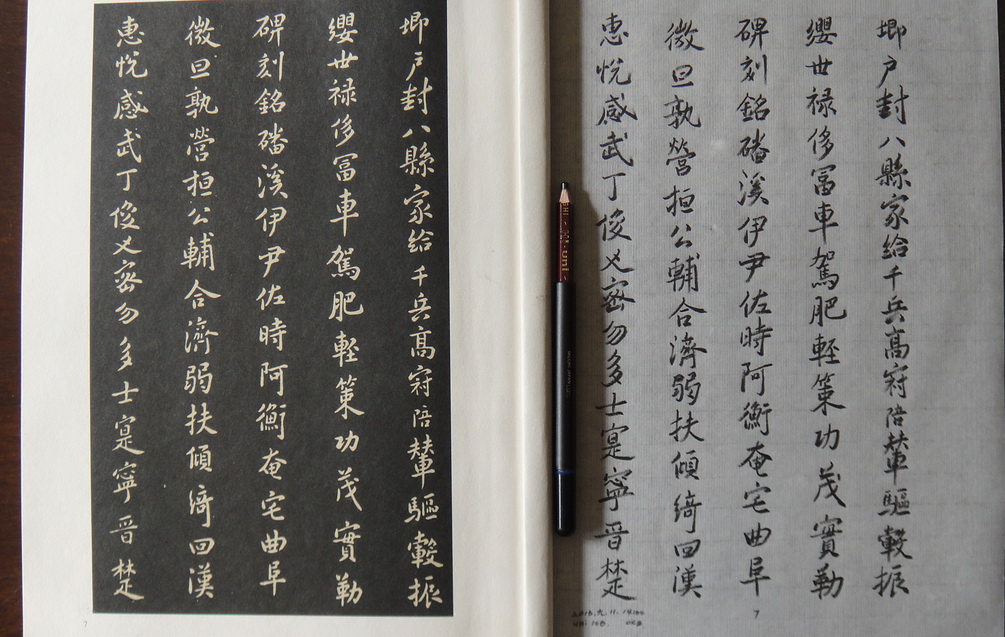 卿户封八縣家給千兵高冠陪輦驅轂振
纓世禄侈冨車駕肥軽策功茂實勒
碑刻銘磻溪伊尹佐時阿衡奄宅曲阜
微旦孰營桓公輔合濟弱扶傾綺回漢
惠悦感武丁俊乂密勿多士寔寧晋楚
7
卿户封八縣家給千兵高冠陪輦驅轂振
纓世禄侈冨車駕肥軽策功茂實勒
碑刻銘磻溪伊尹佐時阿衡奄宅曲阜
微旦孰營桓公輔合濟弱扶傾綺回漢
惠悦感武丁俊乂密勿多士寔寧晋楚
7
uni